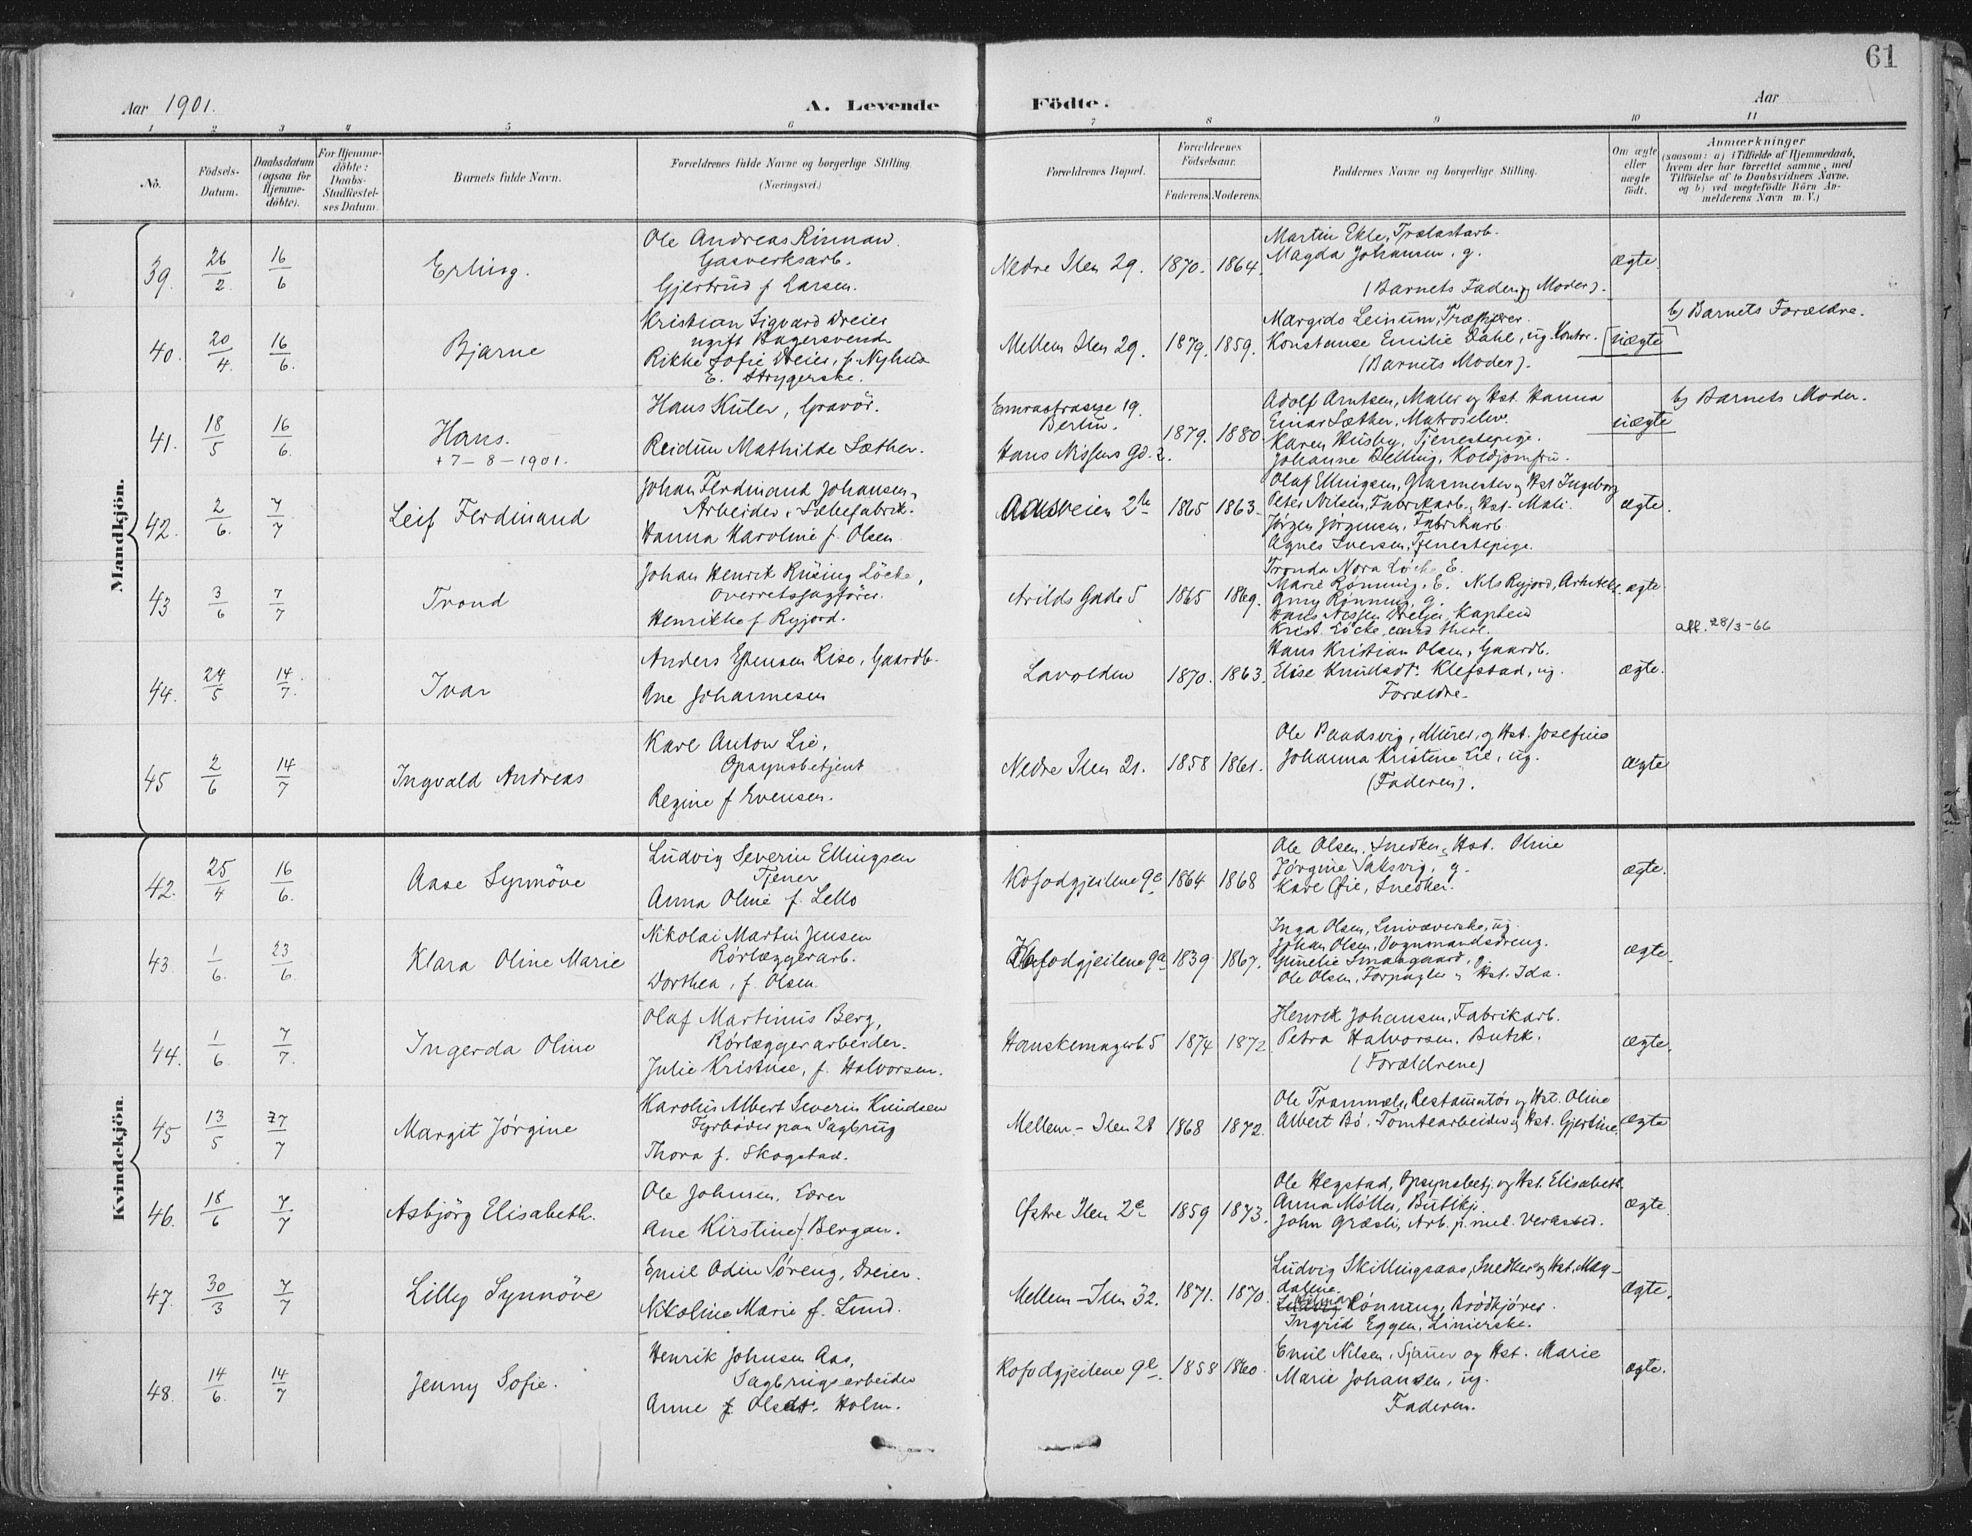 61
Aar 1901.
A. Levende Födte.
Aar
1 2 3 4 5 6 7 8 9 10 11
No.
Födsels-Datum.
Daabsdatum (ogsaa for Hjemme-döbte).
For Hjemme-döbte: Daabs-Stadfæstel-ses Datum.
Barnets fulde Navn.
Forældrenes fulde Navne og borgerlige Stilling. (Næringsvei.)
Forældrenes Bopæl.
Forældrenes Födselsaar.
Faderens. Moderens.
Faddernes Navne og borgerlige Stilling.
Om ægte eller uægte födt.
Anmærkninger
(saasom: a) i Tilfælde af Hjemmedaab,
hvem der har forrettet samme, med
Tilföielse af to Daabsvidners Navne,
og b) ved uægtefödte Börn An-
melderens Navn m. V.)
Mandkjön.
39. 26/2 16/6 Erling.
Ole Andreas Rinnan.
Gasverksarb.
Gjertrud f Larsen.
Nedre Ilen 29. 1870. 1864.
Martin Ekle, Trælastarb.
Magda Johansen, g.
(Barnets Fader og Moder).
ægte.
40. 20/4 16/6 Bjarne
Kristian Sigvard Dreier
ugift Bagersvend
Rikke Sofie Dreier, f. Nyhus
E. Strygerske.
Mellem Ilen 29. 1879. 1859.
Margido Leinum, Træskjærer
Konstanse Emilie Dahl, ug. Kontor.
(Barnets Moder).
uægte
b) Barnets Forældre.
41. 18/5 16/6 Hans.
+ 7-8-1901.
Hans Küler, Gravör.
Reidun Mathilde Sæther.
Berlin.
Hans Nissens Gd. 2. 1879. 1880.
Adolf Arntsen, Maler og Hst. Hanna
Einar Sæther, Matroselev.
Karen Husby, Tjenestepige.
Johanne Delling, Koldjomfru.
uægte
b) Barnets Moder.
42. 2/6 7/7 Leif Ferdinand
Johan Ferdinand Johansen,
Arbeider, Sæbefabrik.
Hanna Karoline f. Olsen.
1865 1863.
Olaf Ellingsen, Glasmester og Hst Ingeborg
Peter Nilsen, Fabrikarb. Hst. Mali.
Jørgen Jørgensen, Fabrikarb
Agnes Iversen, Tjenestepige.
ægte.
43 3/6 7/7 Trond
Johan Henrik Rüsing Löcke,
Overretssagfører.
Henrikke f Ryjord.
Arilds Gade 5 1865 1869.
Tronda Nora Løcke E.
Marie Rønning, E. Nils Ryjord, Arkitekt.
Rønning g.
Kaptein
Krist. Löcke cand theol.
ægte.
att. 28/3-66
44. 24/5 14/7. Ivar
Anders Estensen Rise, Gaardb.
Ane Johannesen
Lavolden 1870. 1863.
Hans Kristian Olsen, Gaardb.
Elise Knudsdt. Klefstad, ug.
Forældre.
ægte.
45 2/6 14/7 Ingvald Andreas
Karl Anton Lie,
Opsynsbetjent
Regine f Evensen.
Nedre Ilen 21. 1858 1861.
Ole Daadsvig, Murer, og Hst. Josefine
Johanna Kristene Lie, ug.
(Faderen).
ægte
Kvindekjön.
42. 25/4 16/6. Aase Synnöve
Ludvig Severin Ellingsen
Tjener
Anna Oline f. Lello
Kofodgjeilene 9e 1864 1868
Ole Olsen, Snedker, Hst. Oline
Jørgine Saksvig, g.
Karl Øie, Snedker.
ægte.
43. 1/6. 23/6. Klara Oline Marie
Nikolai Martin Jensen
Rörlæggerarb.
Dorthea, f. Olsen.
Kofodgjeilene 9a 1839 1867.
Inga Olsen, Linvæverske, ug.
Johan Olsen, Vognmandsdreng.
Smaagaard, g.
Ole Olsen, Forpagter og Hst. Ida.
ægte.
44. 1/6 7/7. Ingerda Oline
Olaf Martinus Berg,
Rörlæggerarbeider.
Julie Kristine, f. Halvorsen.
Hanskemagerb 5 1874 1872.
Henrik Johansen, Fabrikarb.
Petra Halvorsen, Butik.
(Forældrene)
ægte.
45 13/5 7/7 Margit Jörgine
Karolius Albert Severin Knudsen
Fyrböder paa Sagbrug
Thora f. Skogstad.
Mellem-Ilen 28 1868 1872.
Ole Trammels, Restauratör og Hst. Oline
Albert Bö, Tomtearbeider og Hst. Gjertine.
ægte
46. 18/6 7/7 Asbjörg Elisabeth.
Ole Johnsen, Lærer
Ane Kirstine f. Bergan.
Østre Ilen 2e 1859 1873.
Ole Hegstad, Opsynsbetj. og Hst. Elisabeth
Anna Møller, Butikkj.
John Græsli, Arb. p. mek. Verksted.
ægte.
47. 30/3 7/7 Lilly Synnöve
Emil Odin Søreng, Dreier.
Nikoline Marie f. Lund.
Mellem-Ilen 32. 1871. 1870.
Ludvig Skillingsaas, Snedker og Hst. Mag-
dalene.
Rönning, Brödkjörer.
Ingrid Eggen, Linierske.
ægte.
48. 14/6. 14/7 Jenny Sofie.
Henrik Johnsen Aas,
Sagbrugsarbeider
Anne f. Olsdt. Holm.
Kofodgjeilene 9e 1858 1860.
Emil Nilsen, Sjauer og Hst. Marie
Marie Johansen, ug.
Faderen.
ægte.